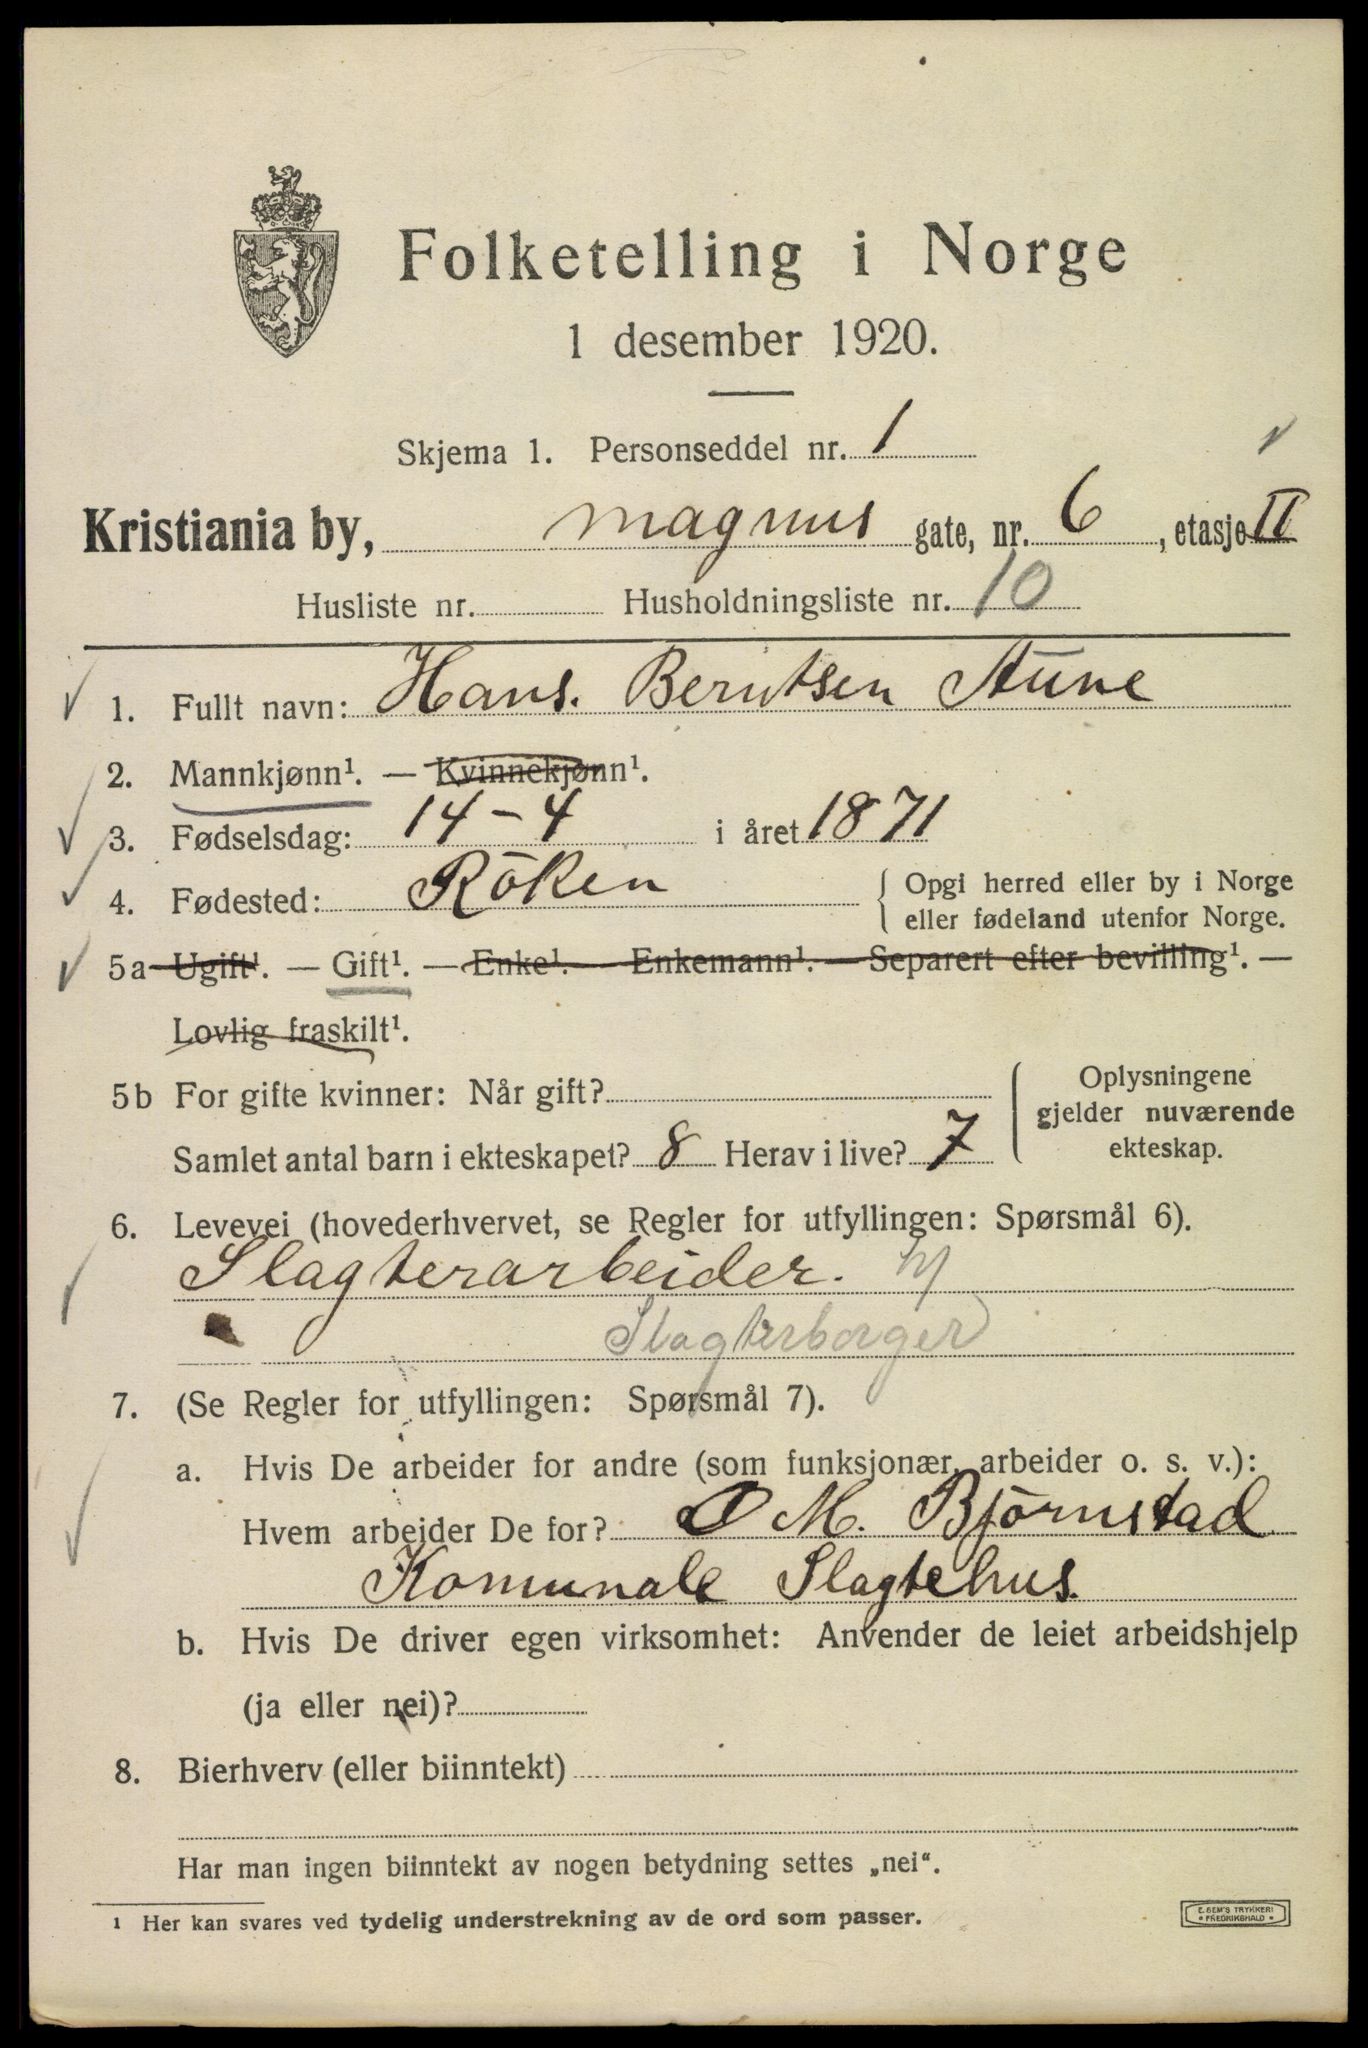 Folketelling i Norge
1 desember 1920.
Skjema 1. Personseddel nr. 1
Kristiania by, magnus gate, nr. 6, etasje II
Husliste nr. Husholdningsliste nr. 10
1. Fullt navn: Hans. Berntsen Aune
2. Mannkjønn¹. — Kvinnekjønn¹.
3. Fødselsdag: 14-4 i året 1871
4. Fødested: Röken { Opgi herred eller by i Norge
eller fødeland utenfor Norge.
5a Ugift¹. — Gift¹. — Enke¹. — Enkemann¹. — Separert efter bevilling¹. —
Lovlig fraskilt¹.
5b For gifte kvinner: Når gift?
Samlet antal barn i ekteskapet? 8 Herav i live? 7
Oplysningene
gjelder nuværende
ekteskap.
6. Levevei (hovederhvervet, se Regler for utfyllingen: Spørsmål 6).
Slagterarbeider.
Slagterborger
7. (Se Regler for utfyllingen: Spørsmål 7).
a. Hvis De arbeider for andre (som funksjonær, arbeider o. s. v.):
Hvem arbeider De for? O M. Björnstad
Komunale Slagtehus.
b. Hvis De driver egen virksomhet: Anvender de leiet arbeidshjelp
(ja eller nei)?
8. Bierhverv (eller biinntekt)
Har man ingen biinntekt av nogen betydning settes „nei“.
¹ Her kan svares ved tydelig understrekning av de ord som passer.
E. SEM'S TRYKKERI
FREDRIKSHALD